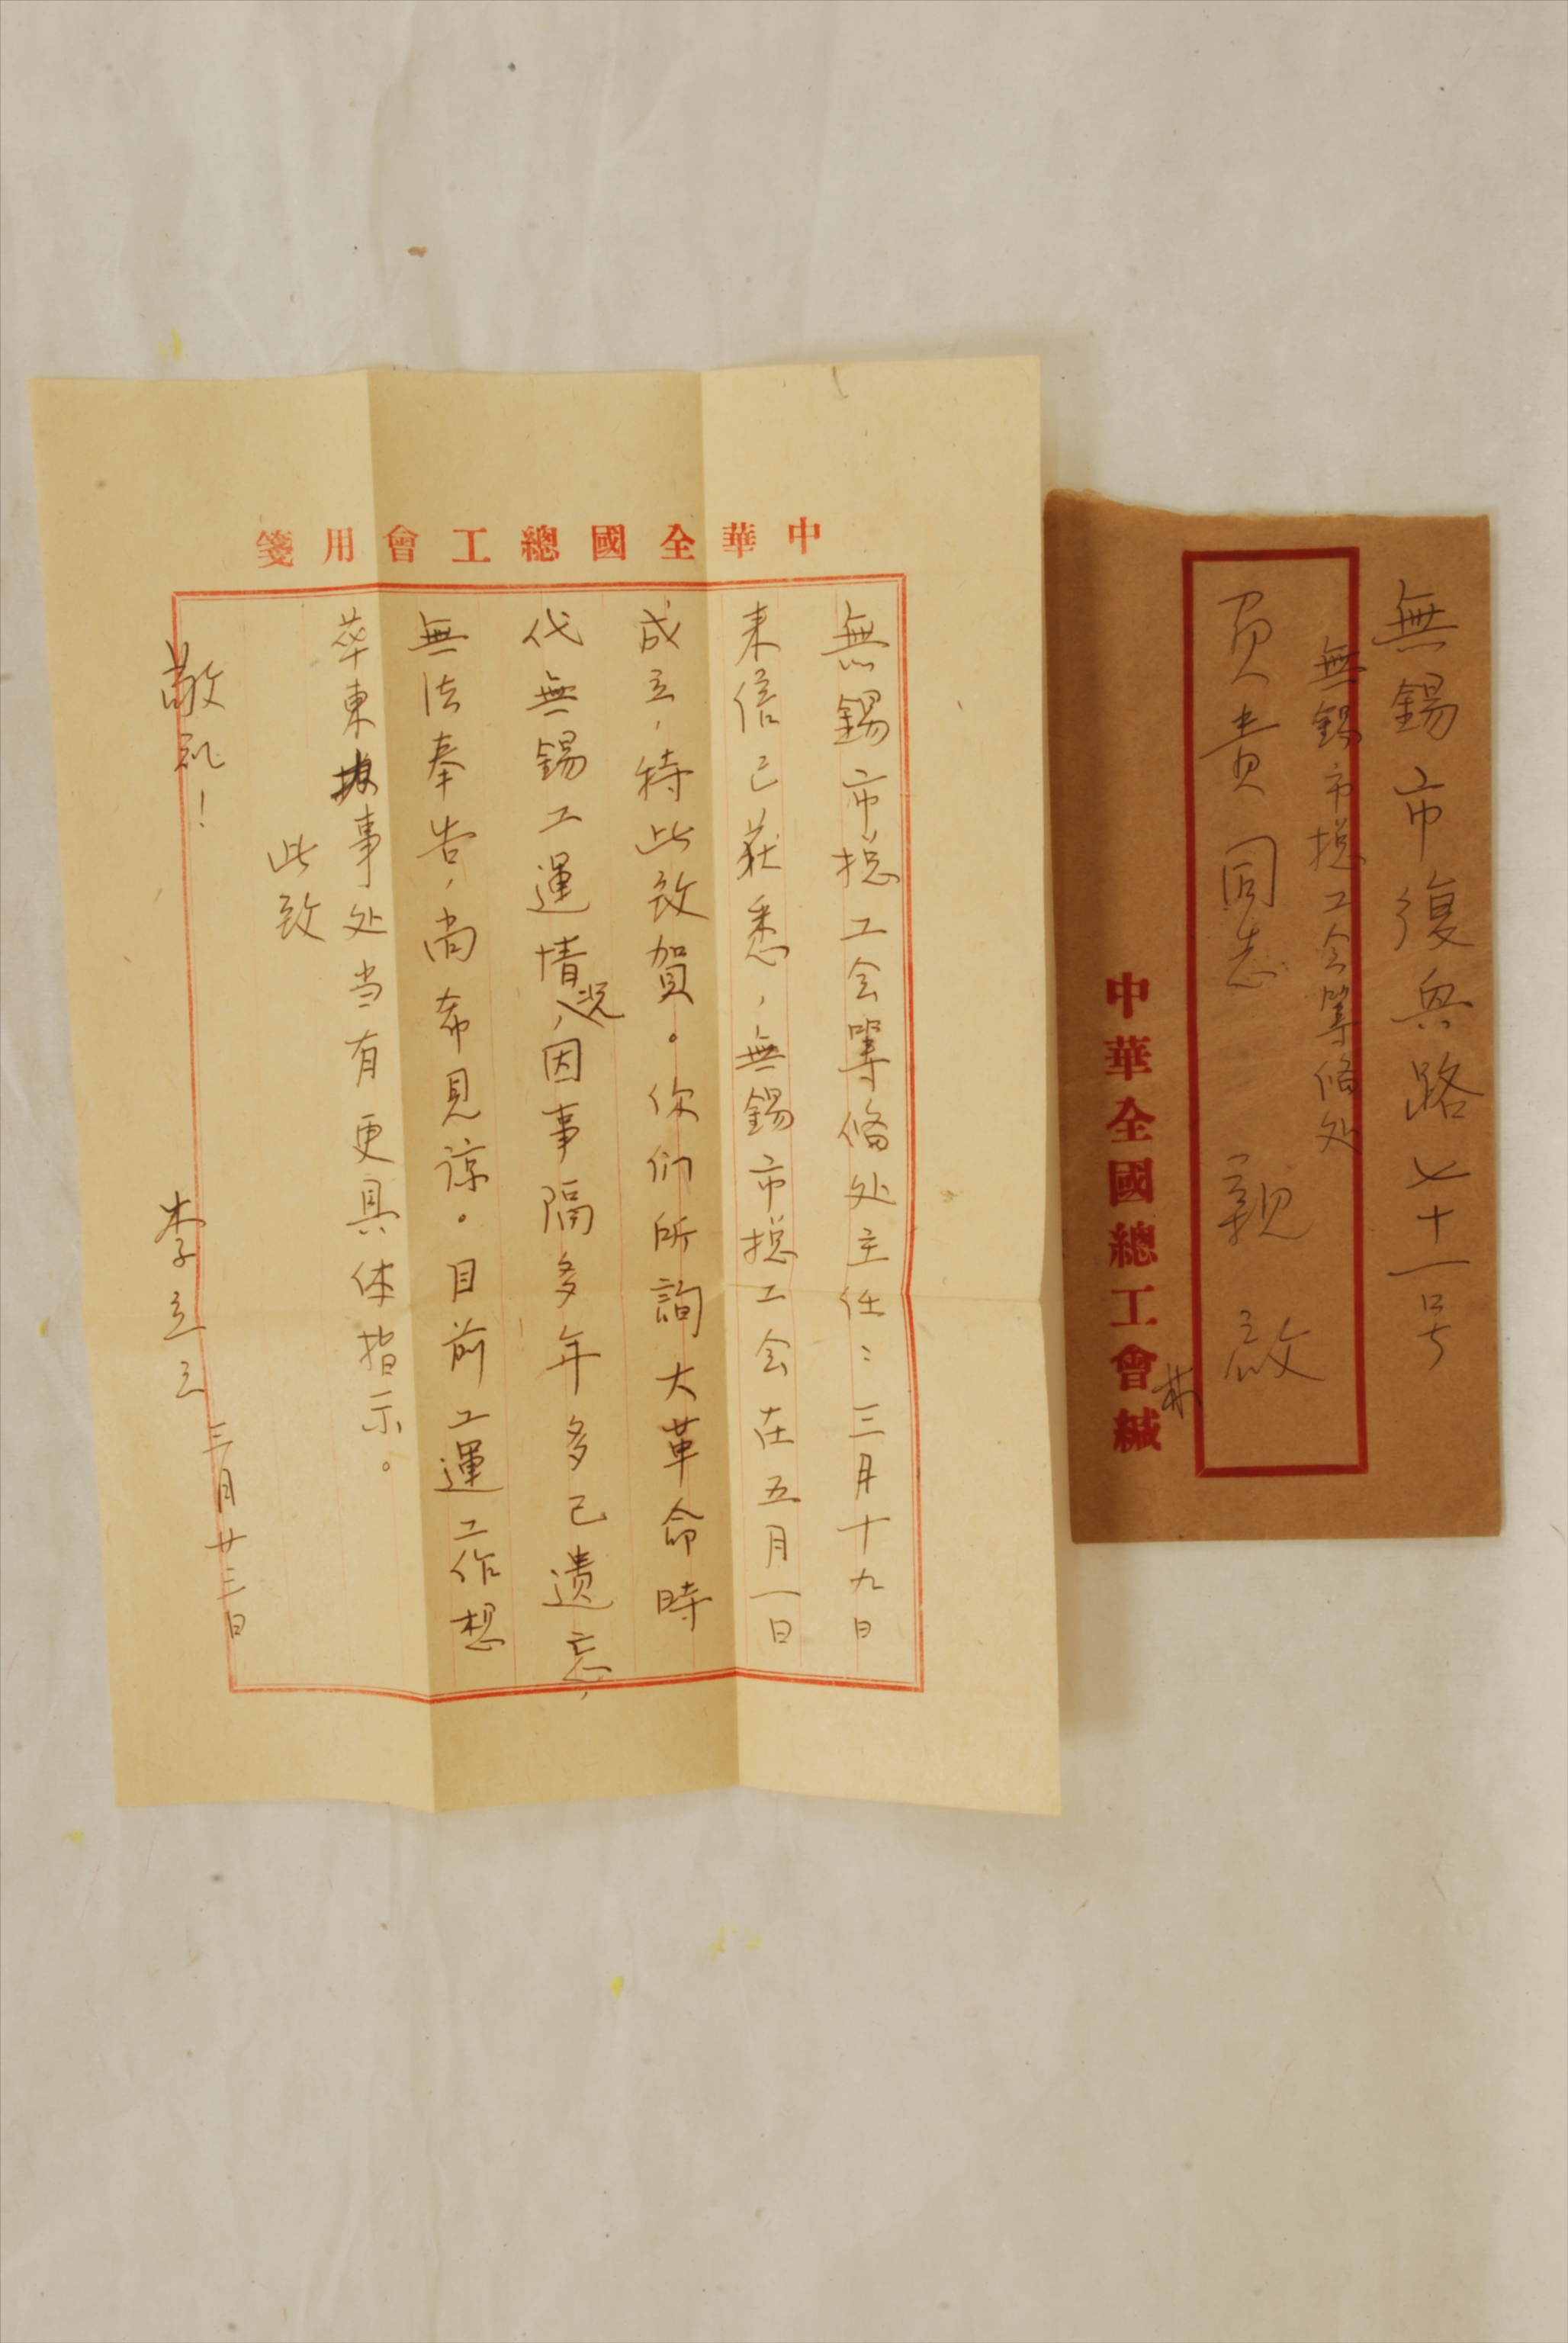 中華全國總工會用箋
無錫市捴工会筹备处主任：三月十九日
来信已获悉，無錫市捴工会在五月一日
成立，特此致賀。你们所詢大革命時
代無錫工運情况，因事隔多年多已遗忘，
無法奉告，尚希見諒。目前工運工作想
华东办事处当有更具体指示。
此致
敬礼！
李立三 三月廿三日
無錫市復兴路七十一号
無錫市捴工会筹备处
貴同志 親啟
中華全國總工會緘